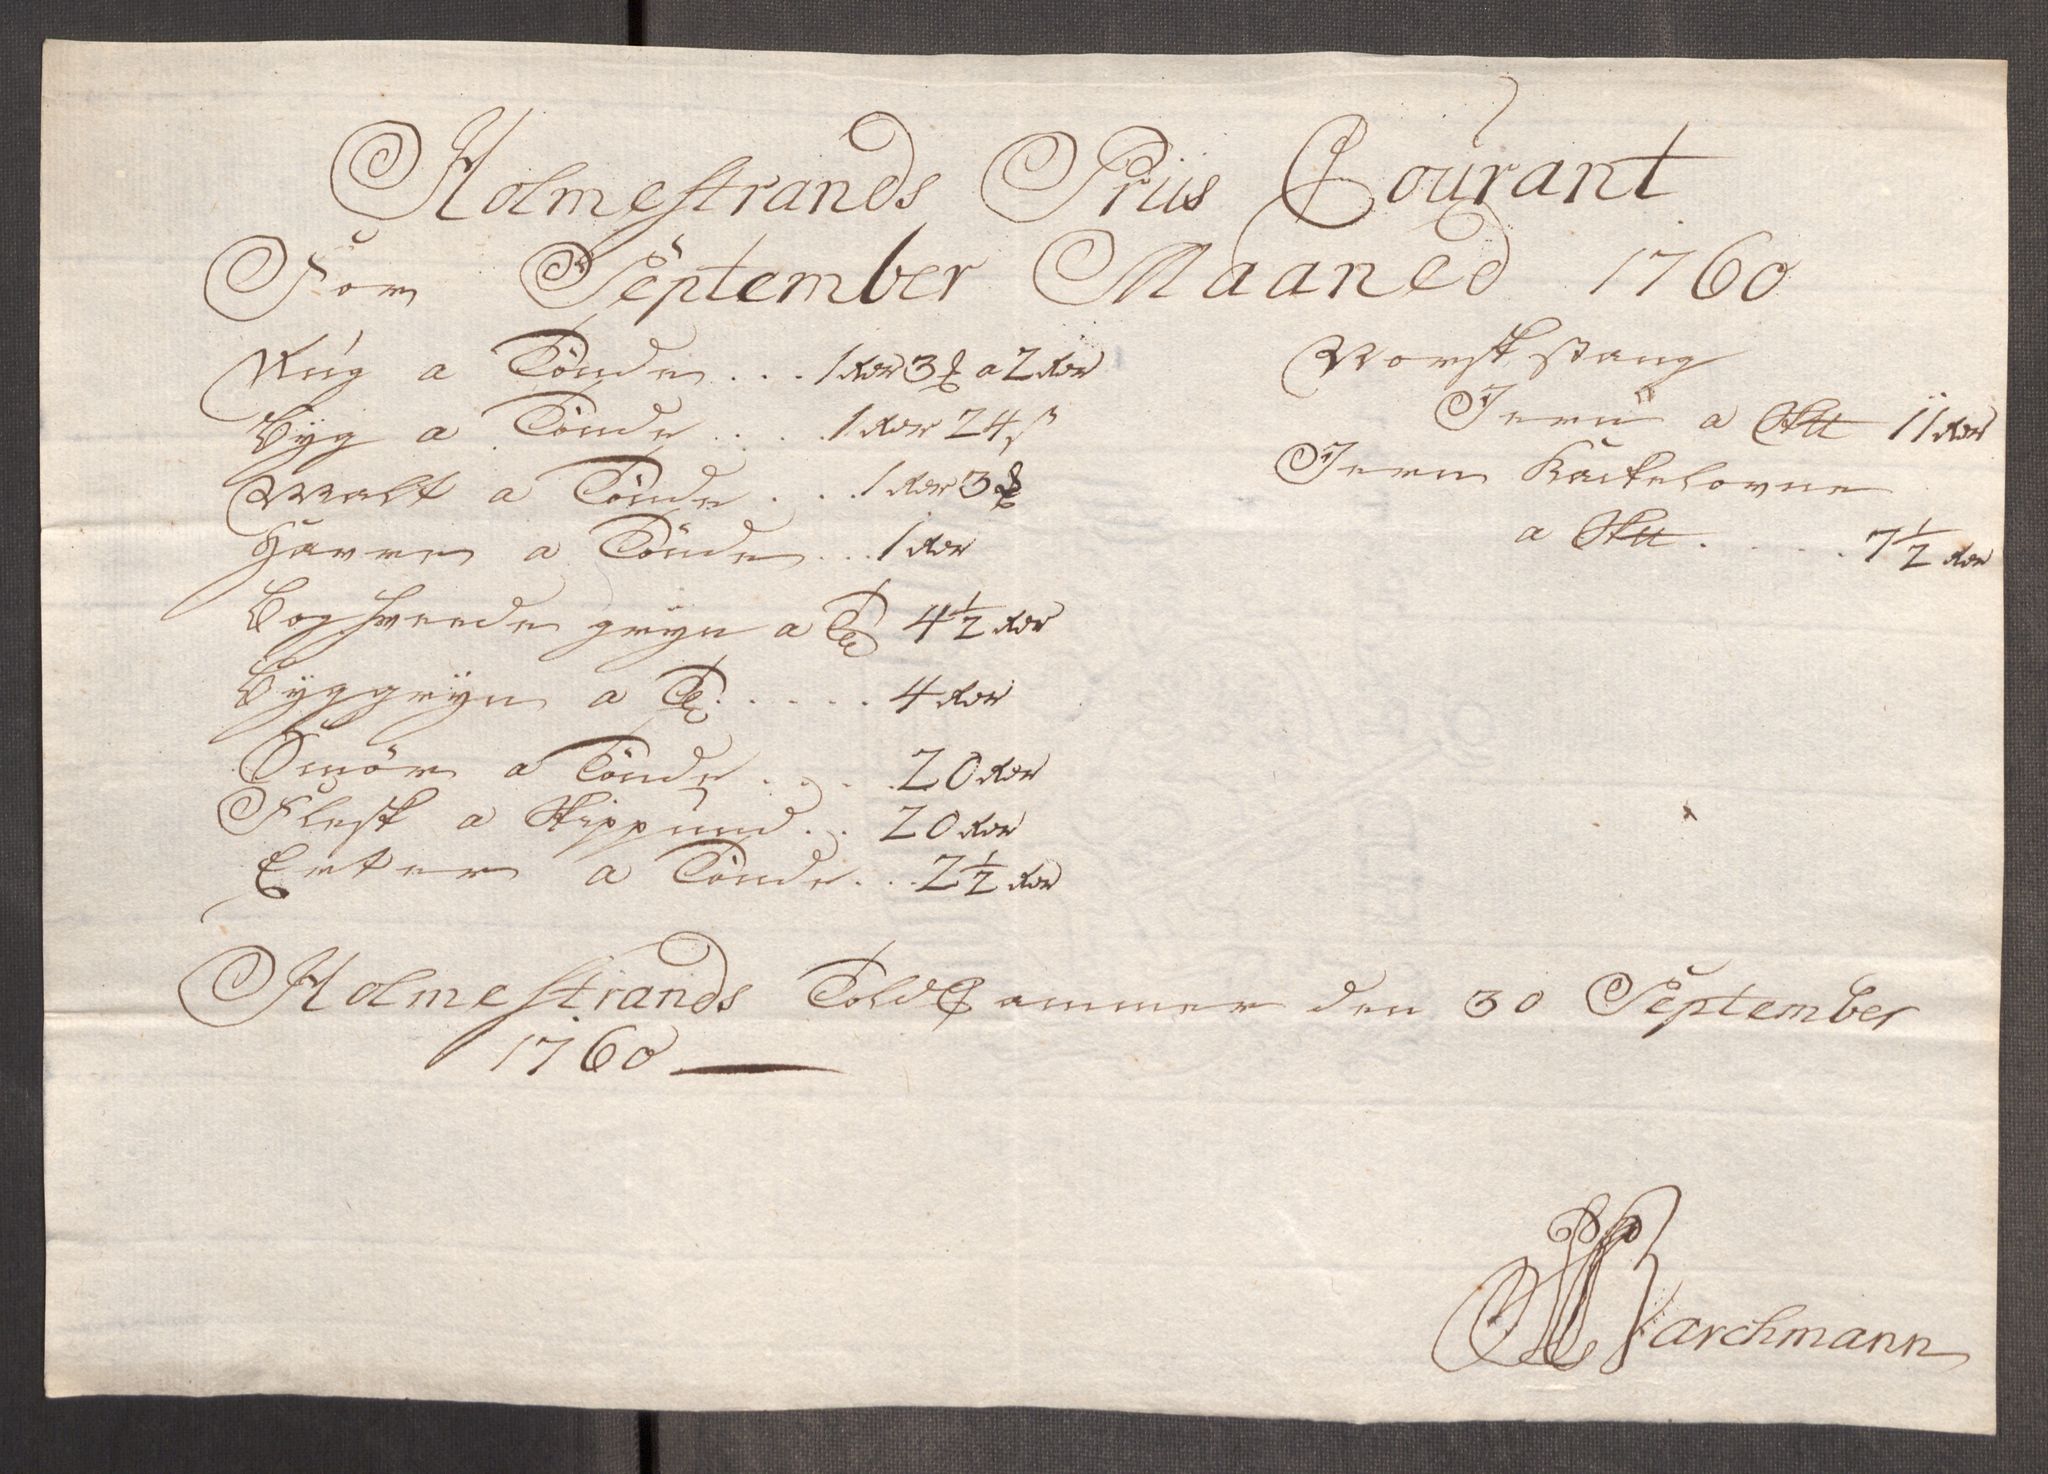 Holmestrands Priis Courant
For September Maaned 1760
Rug a Tönde . . . 1 Rdr 3 ß a 2 Rdr
Byg a Tönde . . . . 1 Rdr 24 ß
Malt a Tönde . . . 1 Rdr 3
Havre a Tönde . . . 1 Rdr
Boghveede gryn a Tde 4½ Rdr
Byggryn a Tde . . . . . 4 Rdr
Smör a Tönde . . . . 20 Rdr
Flesk a Skippund . . 20 Rdr
Erter a Tönde . . . 2½ Rdr
Norsk stang
Jern a Sk℔ 11 Rdr
Jern Kackelovne
a Sk℔ . . . . . 7½ Rdr
Holmestrands Told Cammer den 30 September
1760
Barchmann